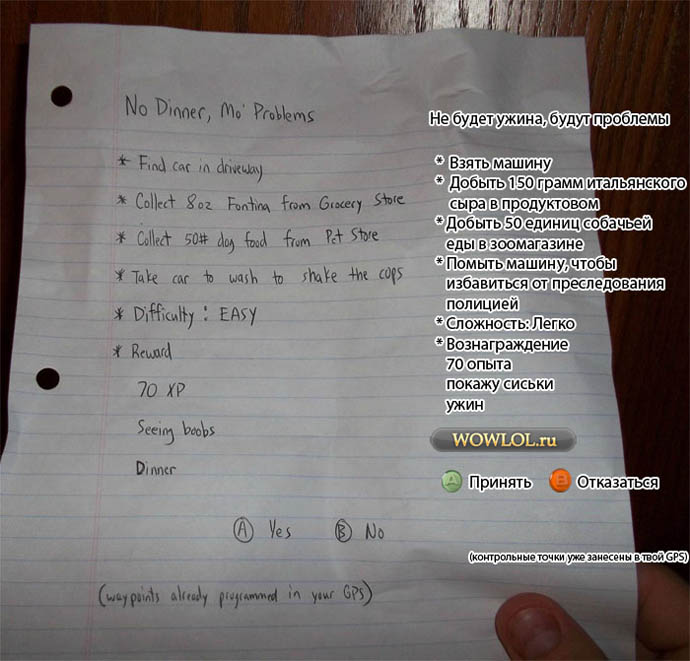 No Dinner, Mo' Problems
* Find car in driveway
* Collect 8oz Fontina from Grocery Store
* Collect 50# dog food from Pet Store
* Take car to wash to shake the cops
* Difficulty : EASY
* Reward
70 XP
Seeing boobs
Dinner
A Yes B No
(waypoints already programmed in your GPS)
Не будет ужина, будут проблемы
* Взять машину
* Добыть 150 грамм итальянского
сыра в продуктовом
* Добыть 50 единиц собачьей
еды в зоомагазине
* Помыть машину, чтобы
избавиться от преследования
полицией
* Сложность: Легко
* Вознаграждение
70 опыта
покажу сиськи
ужин
WOWLOL.ru
A Принять B Отказаться
(контрольные точки уже занесены в твой GPS)